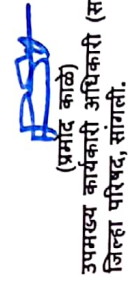 (प्रमोद काळे)
उपमुख्य कार्यकारी अधिकारी (स
जिल्हा परिषद, सांगली.